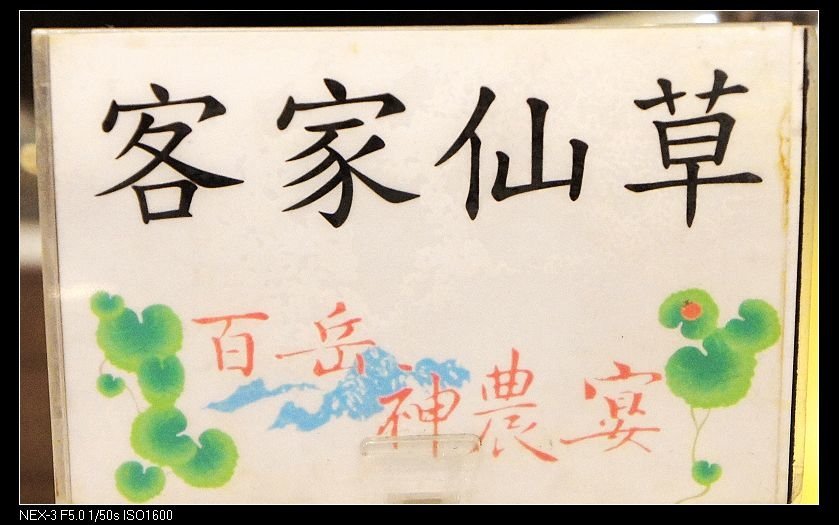 客家仙草
百岳
神農宴
NEX-3 F5.0 1/50s ISO1600